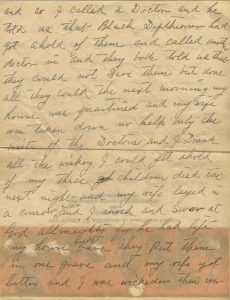 and so I called a Doctor and he
told us that Black Diptheria had
got ahold of them and called another
doctor in and they both told us that
they could not save them but done
all they could the next morning my
house was quarntined and my wife
was taken down no help only the
of the Doctors and I Drank
all the wiskey I could get ahold
of my three children died the
next night and my wife layed in
a and I and Swar at
God allmighty
my house they put them
in one grave and my wife got
better and I was wickeder then